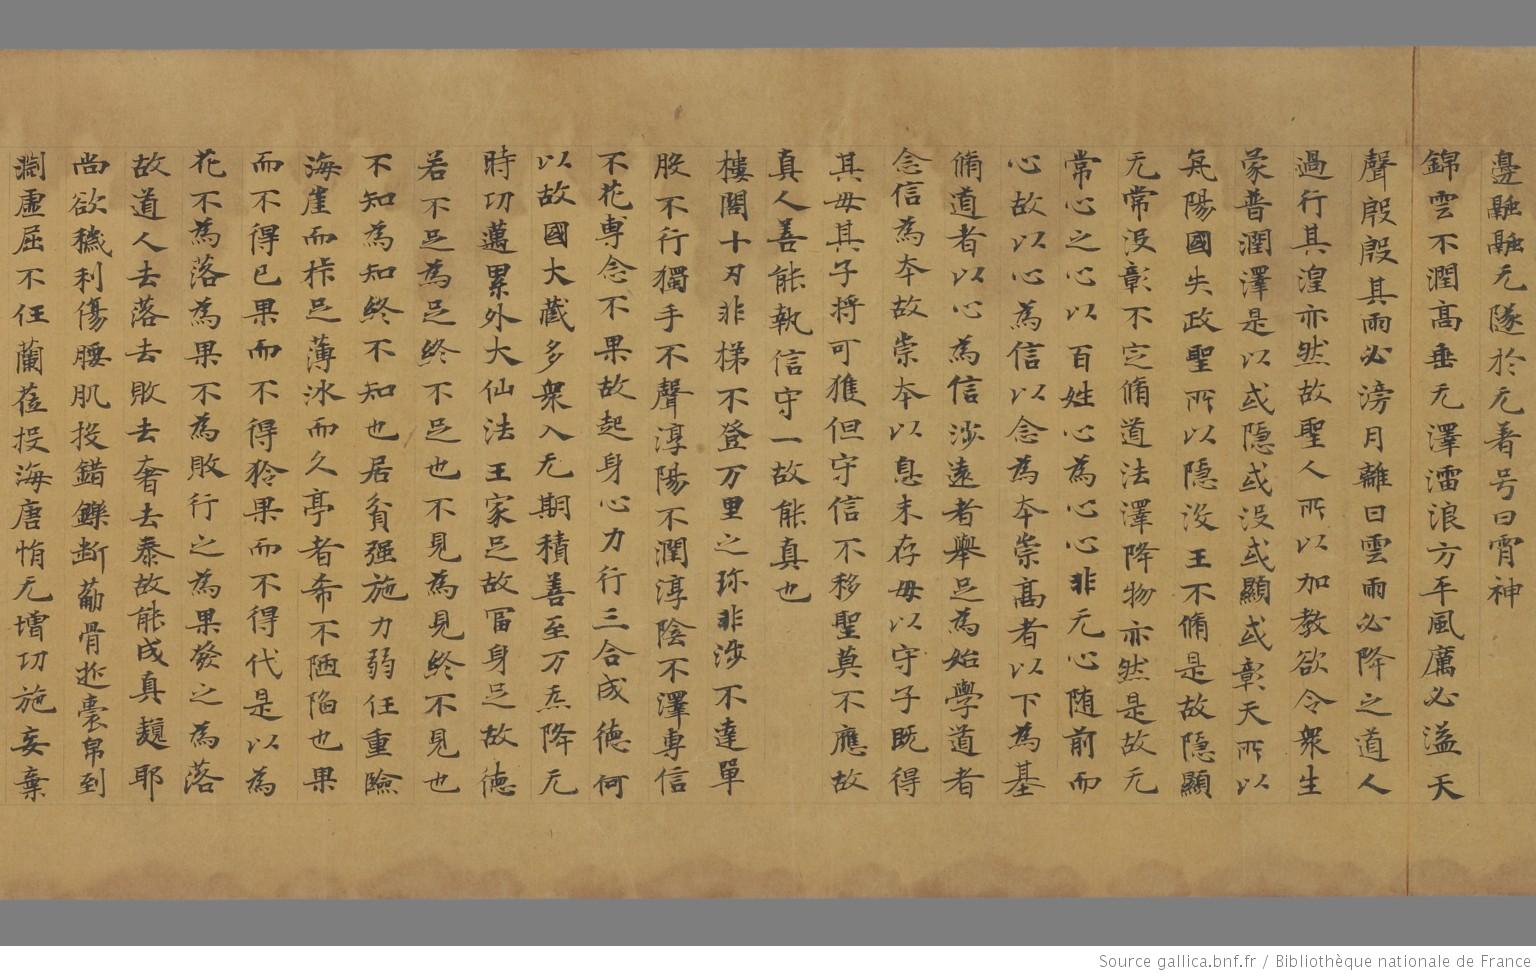 邊融融无隊於无著号曰霄神
錦雲不潤高垂无澤澑浪方平風厲必溢天
聲殷殷其雨必滂月離曰雲雨必降之道人
過行其湟亦然故聖人所以加教欲令衆生
蒙普潤澤是以或隱或没或顯或彰天所以
炁陽國失政聖所以隱没王不脩是故隱顯
无常没彰不定脩道法澤降物亦然是故无
常心之心以百姓心為心心非无心随前而
心故以心為信以念為本崇高者以下為基
脩道者以心為信涉遠者舉足為始學道者
念信為本故崇本以息末存母以守子既得
其母其子将可獲但守信不移聖莫不應故
真人善能執信守一故能真也
樓閣十刃非梯不登万里之珎非涉不達單
股不行獨手不聲淳陽不潤淳陰不澤專信
不花専念不果故起身心力行三合成德何
以故國大藏多衆入无期積善至万炁降无
時功邁累外大仙法王家足故冨身足故德
若不足為足終不足也不見為見終不見也
不知為知終不知也居貧强施力弱任重險
海崖而桍足薄冰而久亭者希不陋陷也果
而不得已果而不得矜果而不得伐是以為
花不為落為果不為敗行之為果發之為落
故道人去落去敗去奢去泰故能成真趨耶
尚欲穢利傷腰肌投錯鑠斷莇骨迯裹帛到
淵虚屈不任蘭莅投海唐惰无增功施妄棄
Source gallica.bnf.fr / Bibliothèque nationale de France